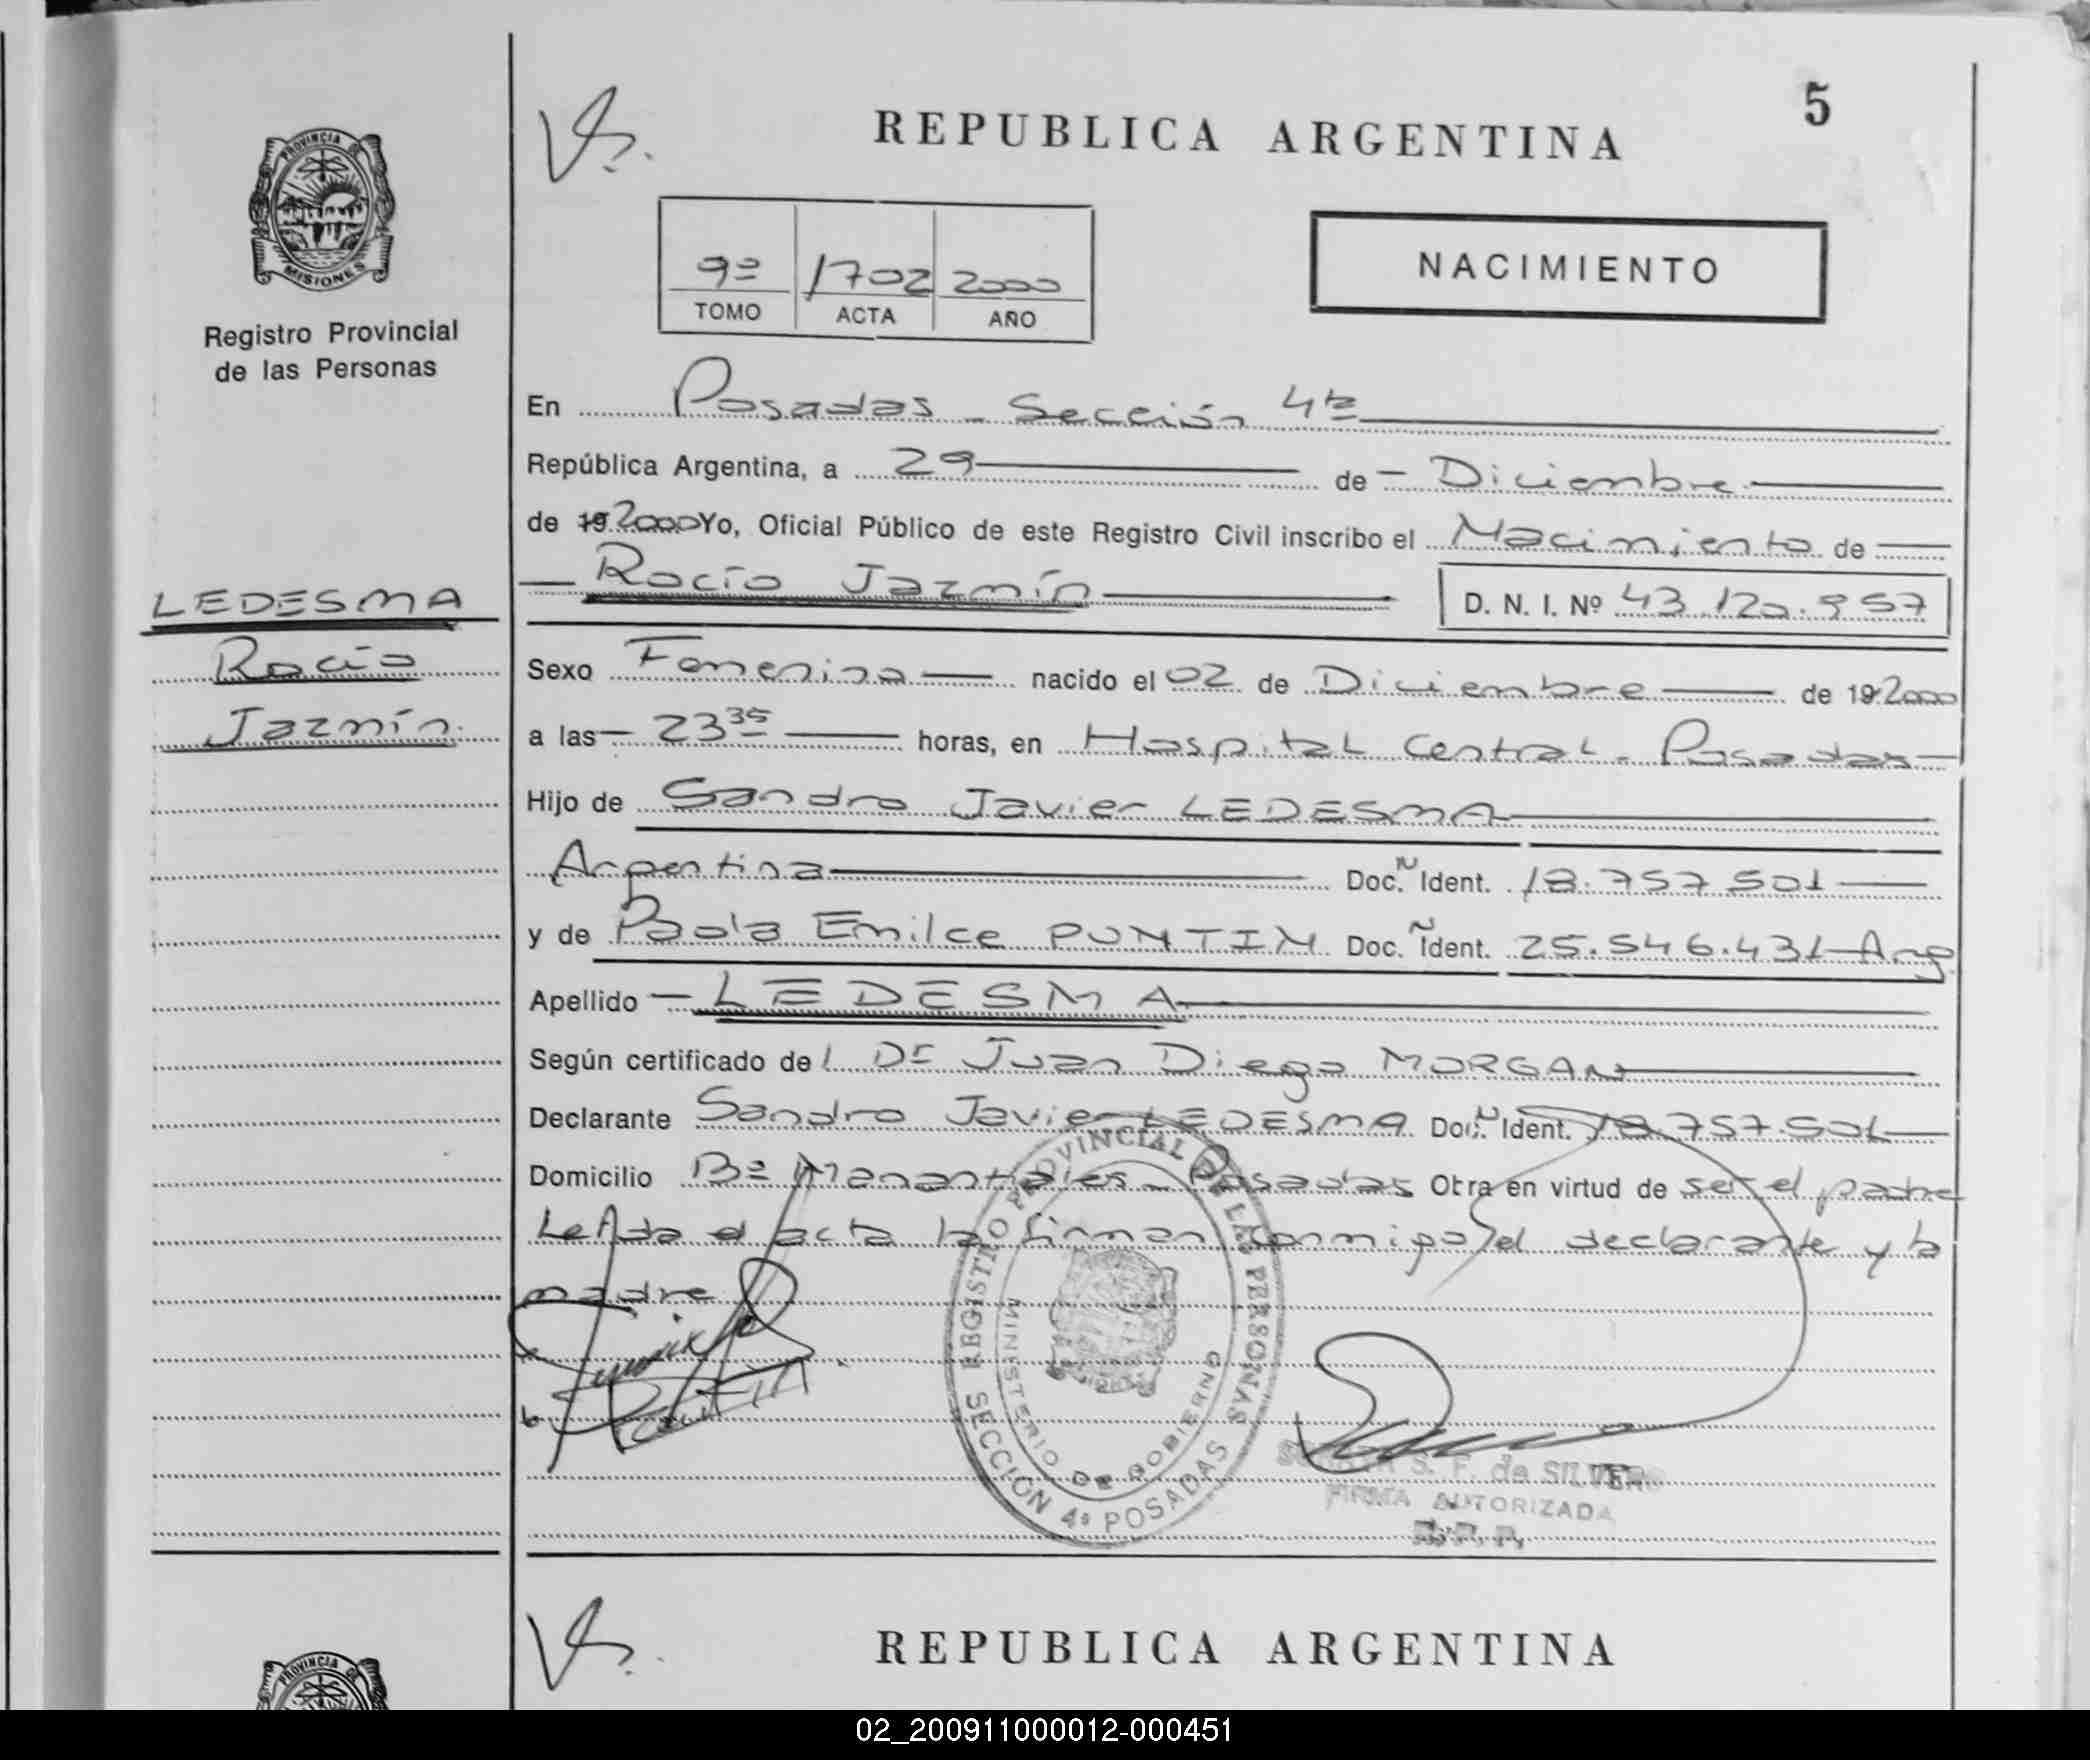 5
REPUBLICA ARGENTINA
PROVINCIA DE
MISIONES
Registro Provincial
de las Personas
9º 1702 2000
TOMO ACTA AÑO
NACIMIENTO
En Posadas - Sección 4ta
República Argentina, a 29 de Diciembre
de 19 2000 Yo, Oficial Público de este Registro Civil inscribo el Nacimiento de
Rocío Jazmín D. N. I. Nº 43.120.957
LEDESMA
Rocío
Jazmín.
Sexo Femenino nacido el 02 de Diciembre de 19 2000
a las 23 35 horas, en Hospital Central - Posadas
Hijo de Sandro Javier LEDESMA
Argentina Doc. N Ident. 18.757.501
y de Paola Emilce PUNTIN Doc. N Ident. 25.546.431 Arg
Apellido LEDESMA
Según certificado de l Dr Juan Diego MORGAN
Declarante Sandro Javier LEDESMA Doc. N Ident. 18.757.501
Domicilio Bº Manantiales - Posadas Obra en virtud de ser el padre
Leída el acta la firman conmigo el declarante y la
madre
REGISTRO PROVINCIAL DE LAS PERSONAS
MINISTERIO DE GOBIERNO
SECCION 4ª POSADAS
S. F. de SILVERO
FIRMA AUTORIZADA
REPUBLICA ARGENTINA
PROVINCIA DE
02_200911000012-000451